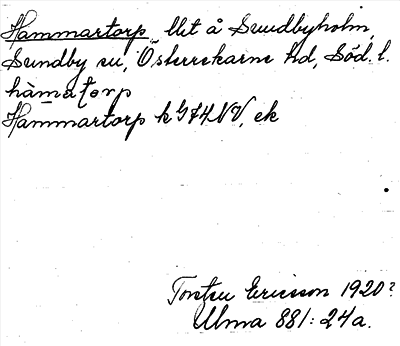 Hammartorp, llit å Sundbyholm,
Sundby sn, Österrekarne hd, Söd. l.
hàmatorp
Hammartorp k G74NV, ek
Torsten Ericsson 1920?
Ulma 881:24a.